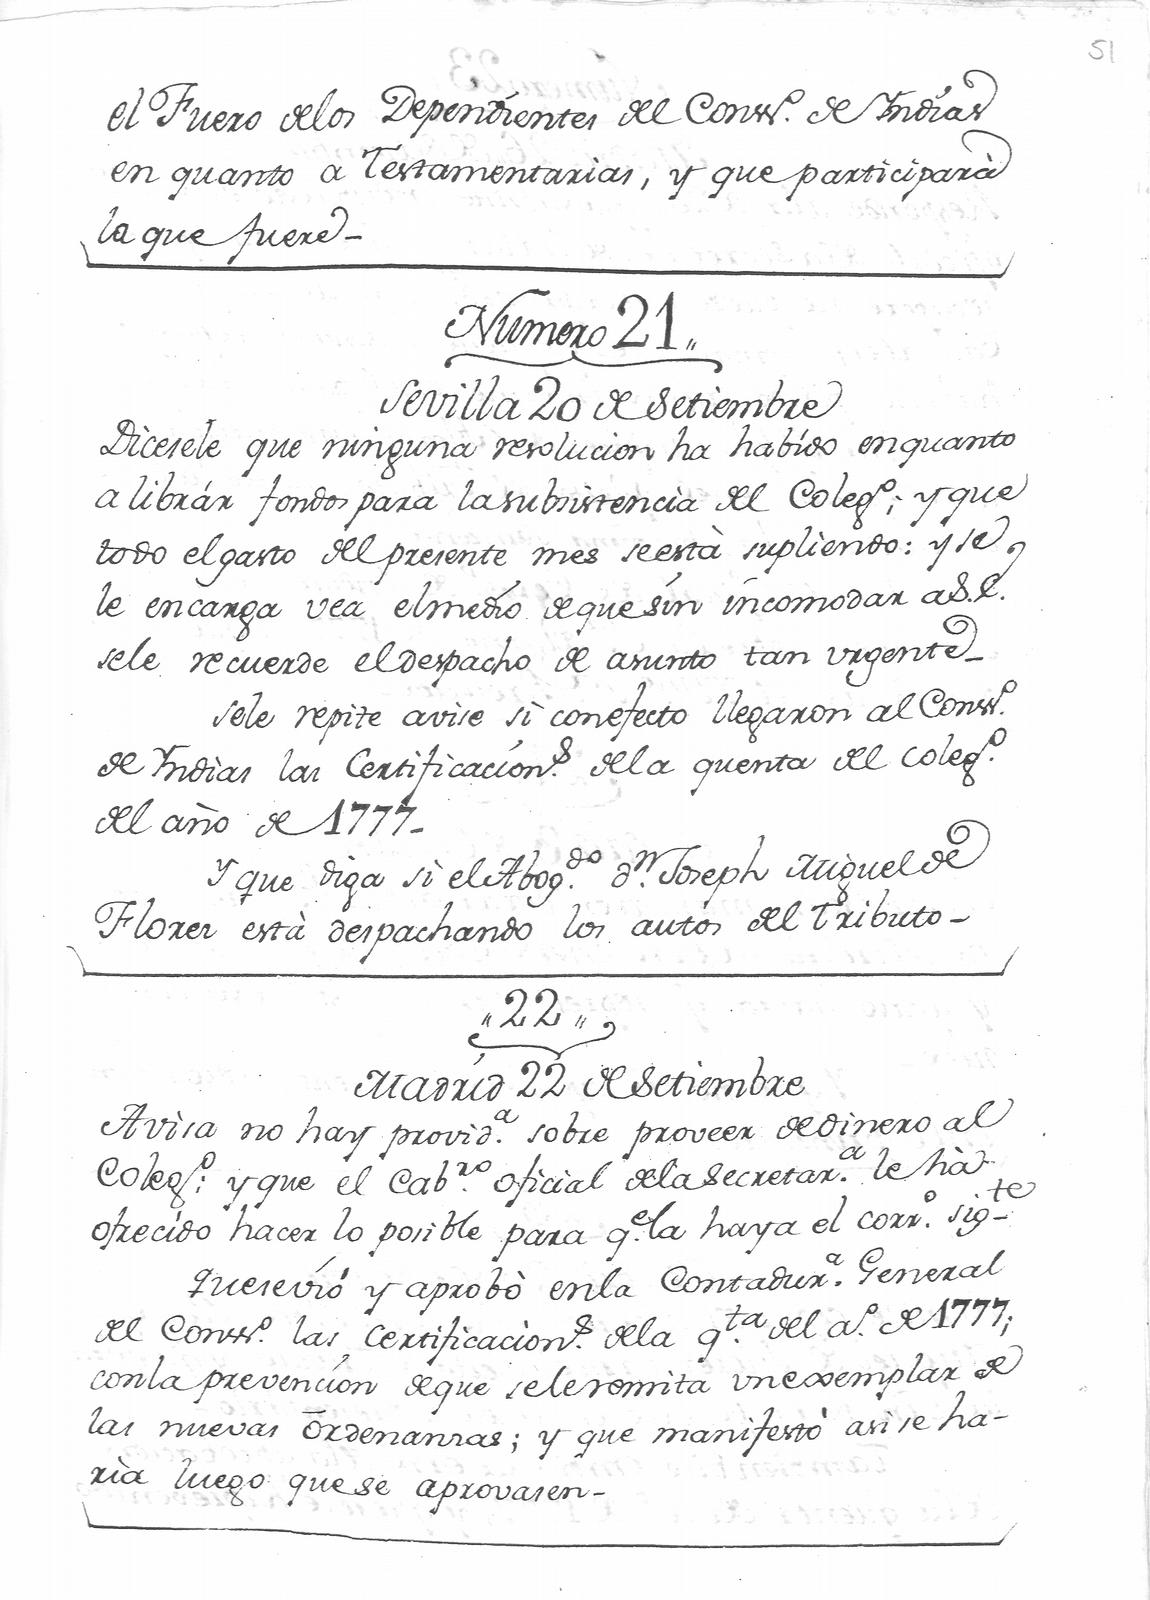 51
el Fuero delos Dependientes del Conss.º de Yndias
en quanto a Testamentarias, y que participarà
la que fuere-
Numero 21„
Sevilla 20 de Setiembre
Dicesele que ninguna resolucion ha habido enquanto
a librár fondos para la subsistencia del Coleg.º; y que
todo el gasto del presente mes se està supliendo: y se
le encarga vea el medio de que sin incomodar a S.E.
sele recuerde el despacho de asunto tan urgente-
sele repite avise si con efecto llegaron al Conss.º
de Yndias las Certificacion.s de la quenta del Coleg.º
del año de 1777-
Y que diga si el Abog.do d.n Joseph Miguel de
Flores està despachando los autos del Tributo-
„22„
Madrid 22 de Setiembre
Avisa no hay provid.a sobre proveer de dinero al
Coleg.º: y que el Cab.ro oficial de la Secretar.a le hà
ofrecido hacer lo posible para q.e la haya el corr.º sig-te
Que se vió y aprobò en la Contadur.a General
del Conss.º las Certificacion.s de la q.ta del a.º de 1777;
con la prevencion de que sele remita un exemplar de
las nuevas Ordenanzas; y que manifestó asi se ha-
ria luego que se aprovasen-